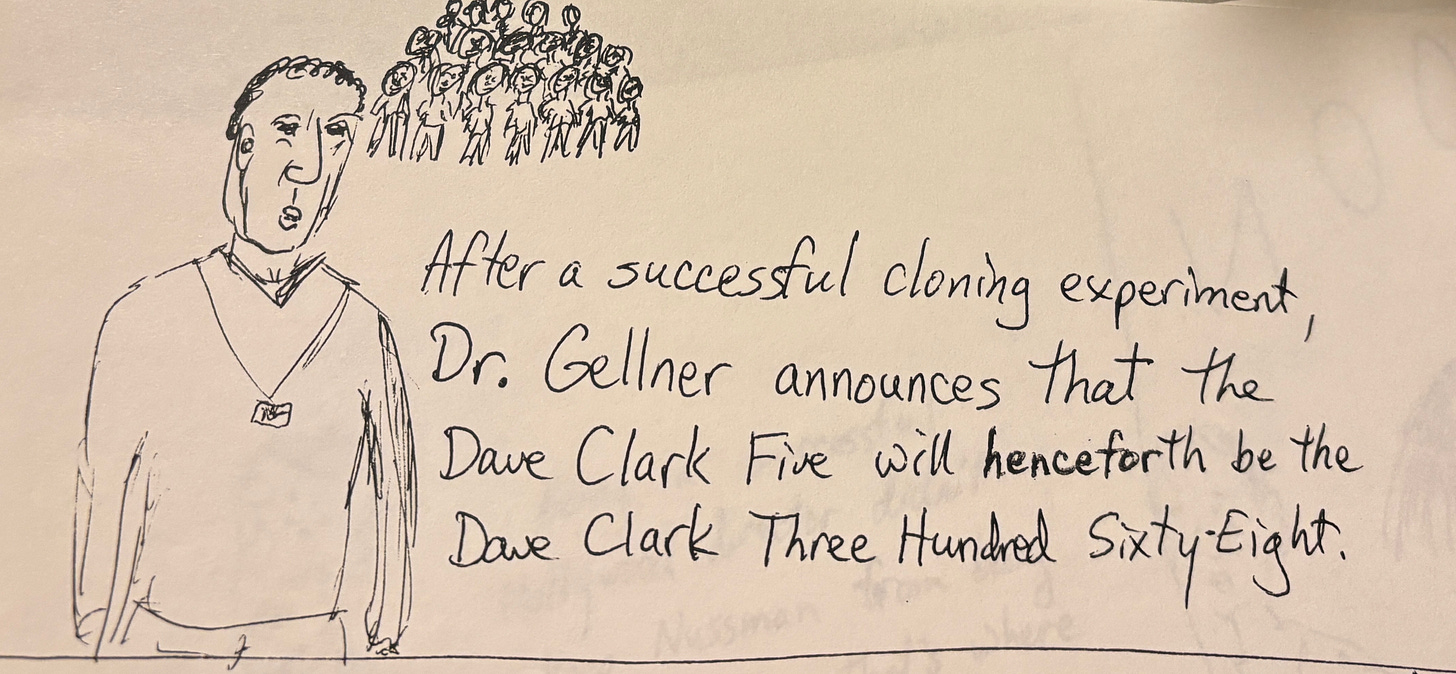 After a successful cloning experiment,
Dr. Gellner announces that the
Dave Clark Five will henceforth be the
Dave Clark Three Hundred Sixty-Eight.
Nussman from
that's where